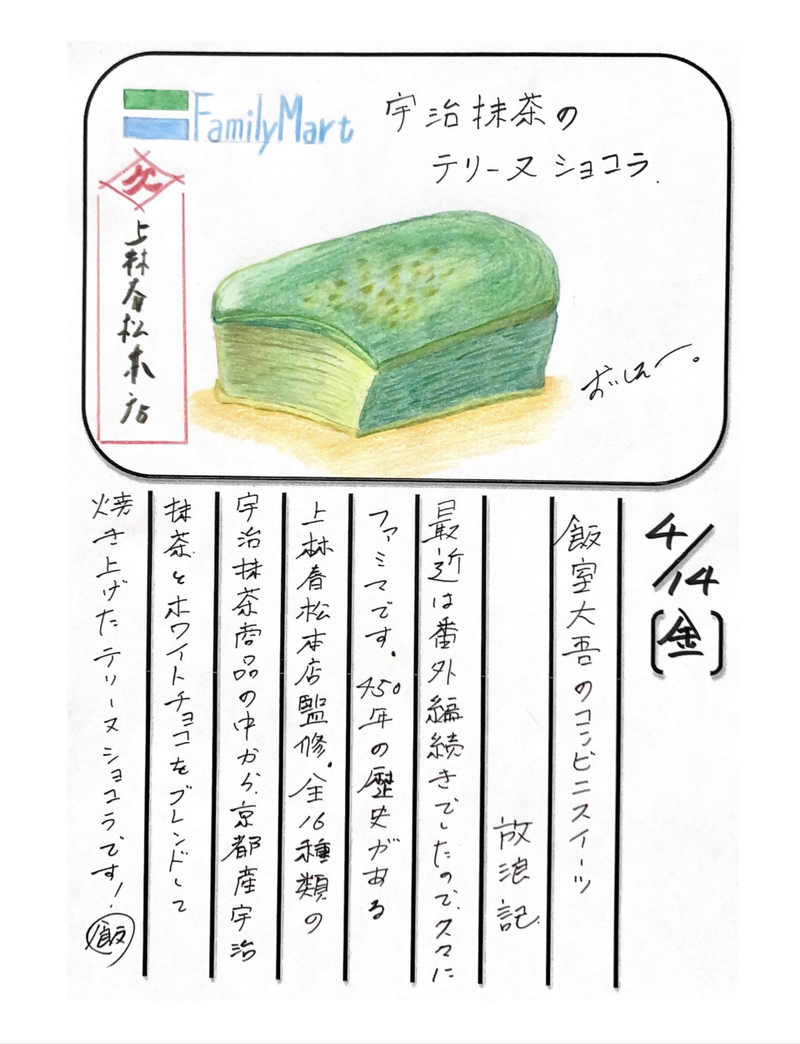 FamilyMart
宇治抹茶の
テリーヌショコラ.
上林春松本店
おいしぃー。
4/14
[金]
飯室大吾のコンビニスイーツ
放浪記
最近は番外編続きでしたので、久々に
ファミマです。450年の歴史がある
上林春松本店監修。全16種類の
宇治抹茶商品の中から、京都産宇治
抹茶とホワイトチョコをブレンドして
焼き上げたテリーヌショコラです!
飯